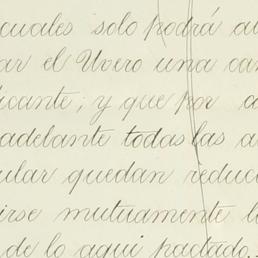 cuales solo podrá a
ar el Uvero una ca
icante; y que por a
adelante todas las a
ular quedan reduc
irse mutuamente l
de lo aqui pactado.